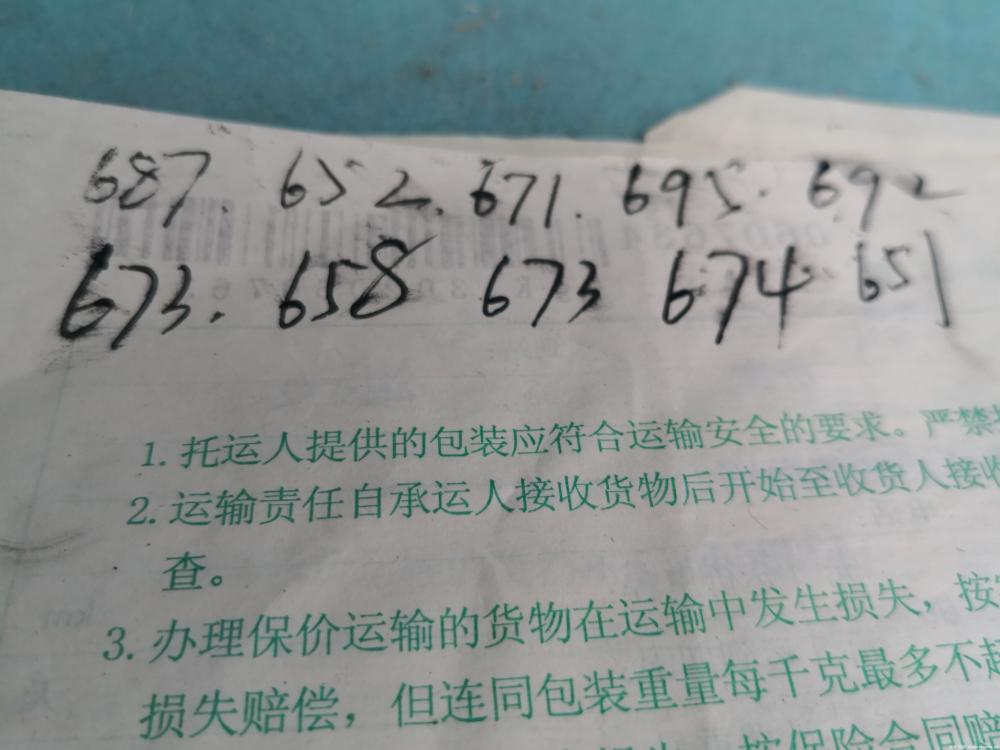 687. 652. 671. 695. 692
673. 658 673 674 651
1. 托运人提供的包装应符合运输安全的要求。严禁
2. 运输责任自承运人接收货物后开始至收货人接收
查。
3. 办理保价运输的货物在运输中发生损失，按
损失赔偿，但连同包装重量每千克最多不超
按保险合同赔